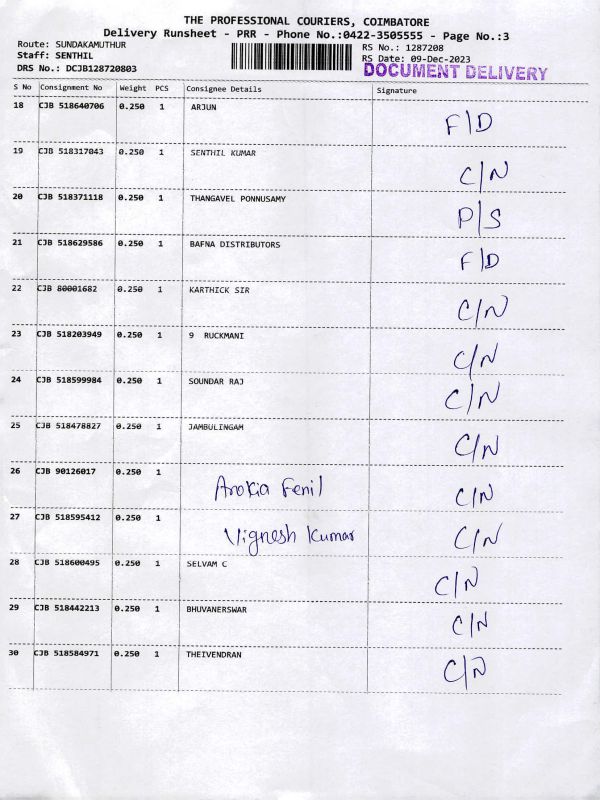 THE PROFESSIONAL COURIERS, COIMBATORE
Delivery Runsheet - PRR - Phone No.:0422-3505555 - Page No.:3
Route: SUNDAKAMUTHUR
Staff: SENTHIL
DRS No.: DCJB128720803
RS No.: 1287208
RS Date: 09-Dec-2023
DOCUMENT DELIVERY
S No Consignment No Weight PCS Consignee Details Signature
18 CJB 518640706 0.250 1 ARJUN F/D
19 CJB 518317043 0.250 1 SENTHIL KUMAR C/N
20 CJB 518371118 0.250 1 THANGAVEL PONNUSAMY P/S
21 CJB 518629586 0.250 1 BAFNA DISTRIBUTORS F/D
22 CJB 80001682 0.250 1 KARTHICK SIR C/N
23 CJB 518203949 0.250 1 9 RUCKMANI C/N
24 CJB 518599984 0.250 1 SOUNDAR RAJ C/N
25 CJB 518478827 0.250 1 JAMBULINGAM C/N
26 CJB 90126017 0.250 1 Arokia Fenil C/N
27 CJB 518595412 0.250 1 Vignesh Kumar C/N
28 CJB 518600495 0.250 1 SELVAM C C/N
29 CJB 518442213 0.250 1 BHUVANERSWAR C/N
30 CJB 518584971 0.250 1 THEIVENDRAN C/N